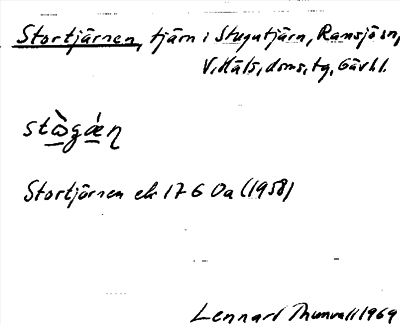 Stortjärnen, tjärn i Stugutjärn, Ramsjö sn,
V. Häls. doms. tg, Gävl.l.
Stortjärnen ek 17 G 0a (1958)
Lennart Thunvall 1969